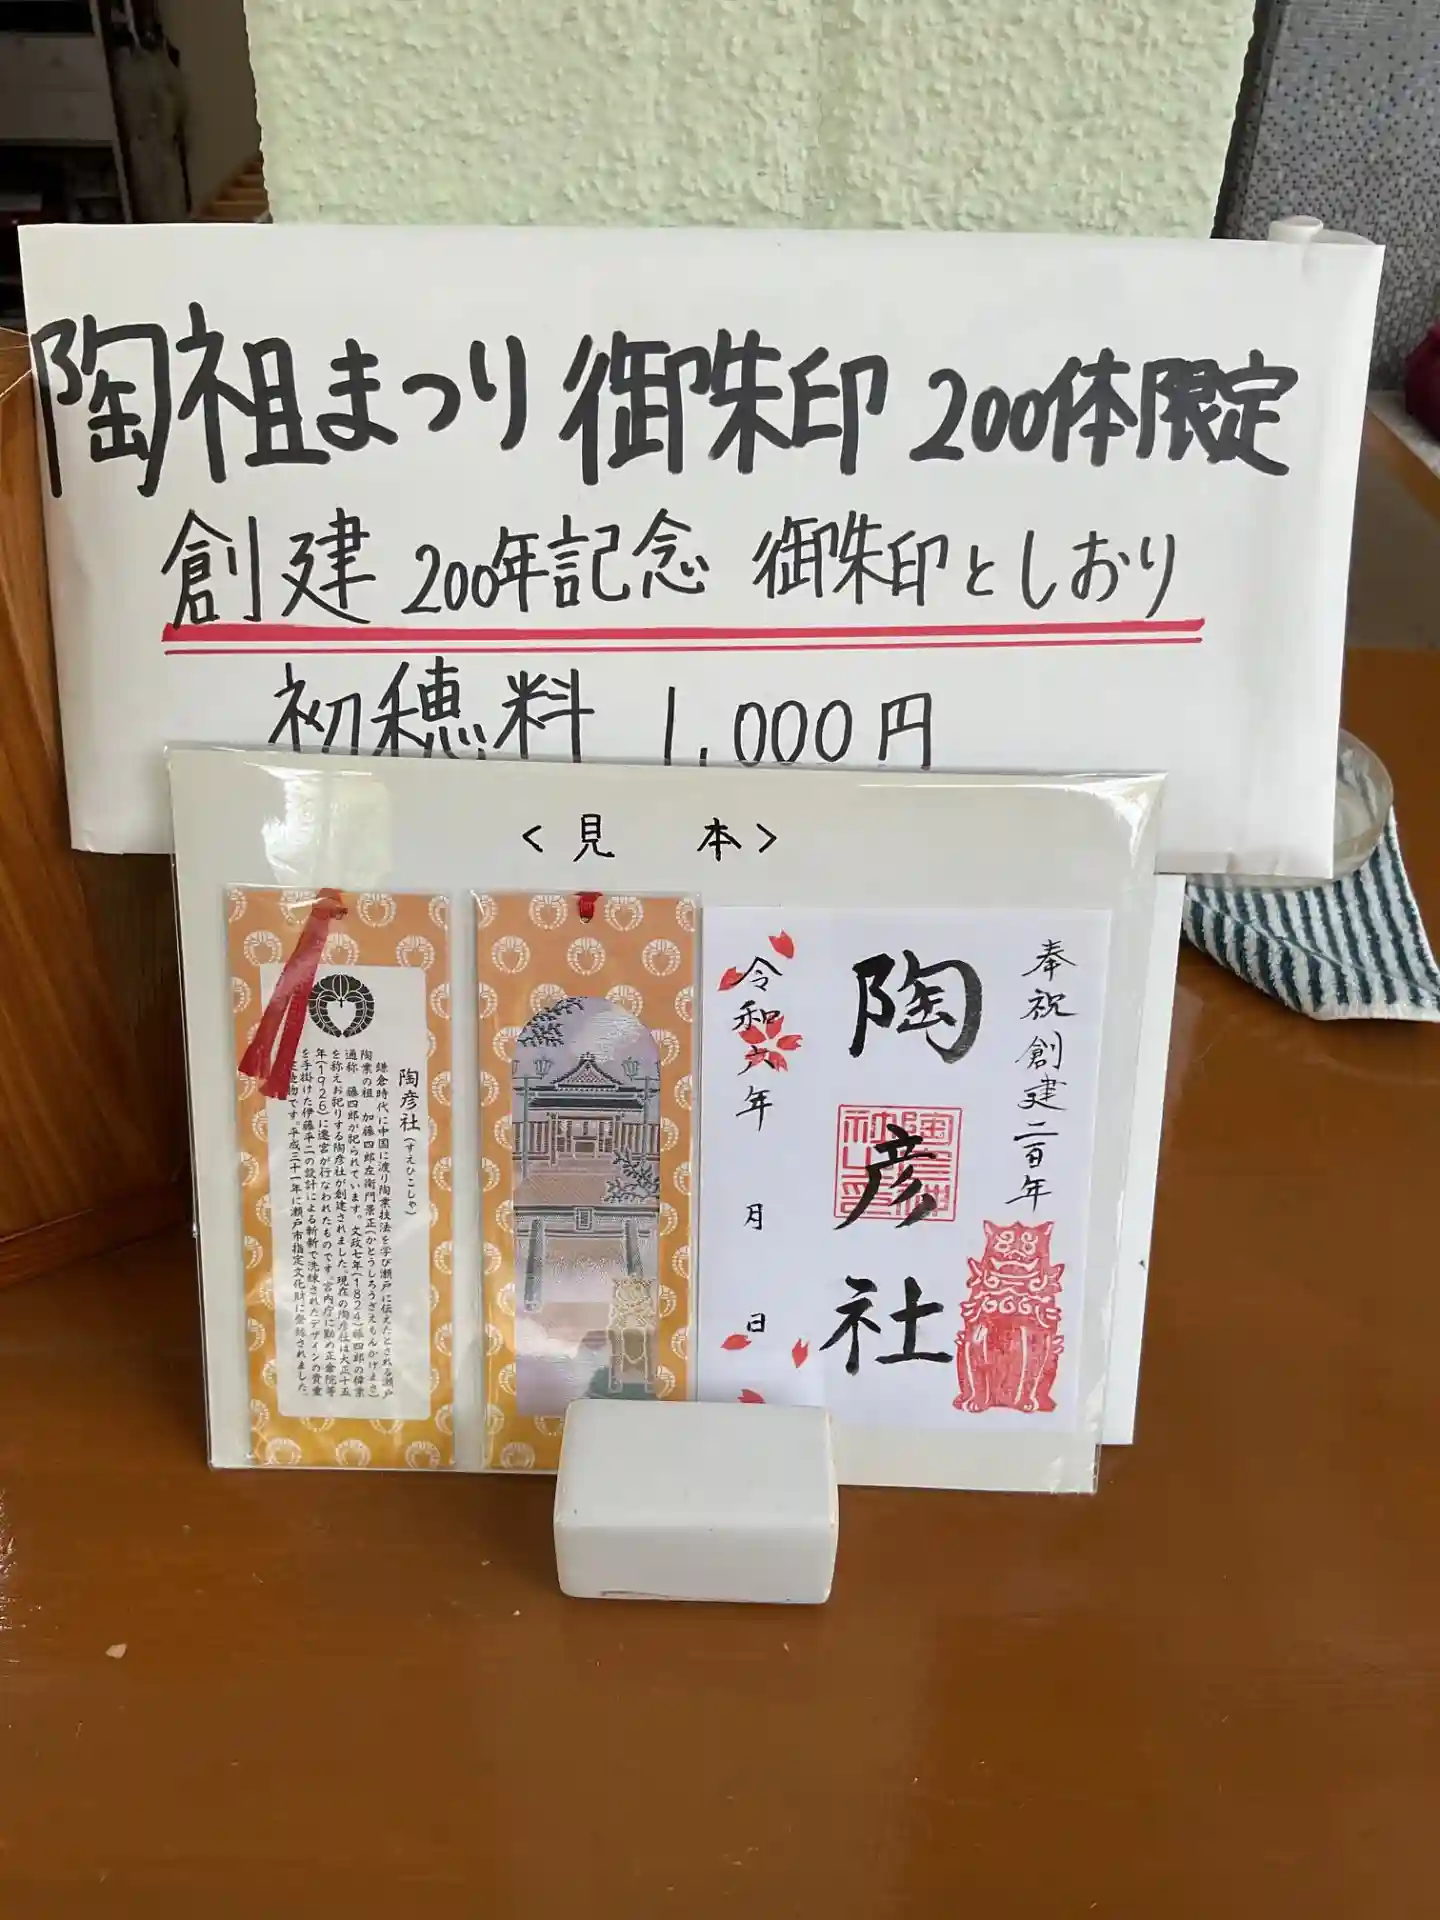 陶祖まつり 御朱印 200体限定
創建 200年記念 御朱印としおり
初穂料 1,000円
<見 本>
奉祝創建二百年
陶彦社
令和六年 月 日
陶彦社(すえひこしゃ)
鎌倉時代に中国に渡り陶業技法を学び瀬戸に伝えたとされる瀬戸
陶業の祖 加藤四郎左衛門景正(かとうしろうざえもんかげまさ)
通称 藤四郎が祀られています。文政七年(1824)藤四郎の偉業
を称えお祀りする陶彦社が創建されました。現在の陶彦社は大正十五
年(1926)に遷宮が行なわれたものです。宮内庁に勤め正倉院等
を手掛けた伊藤平二の設計による斬新で洗練されたデザインの貴重
物です。平成三十一年に瀬戸市指定文化財に登録されました。